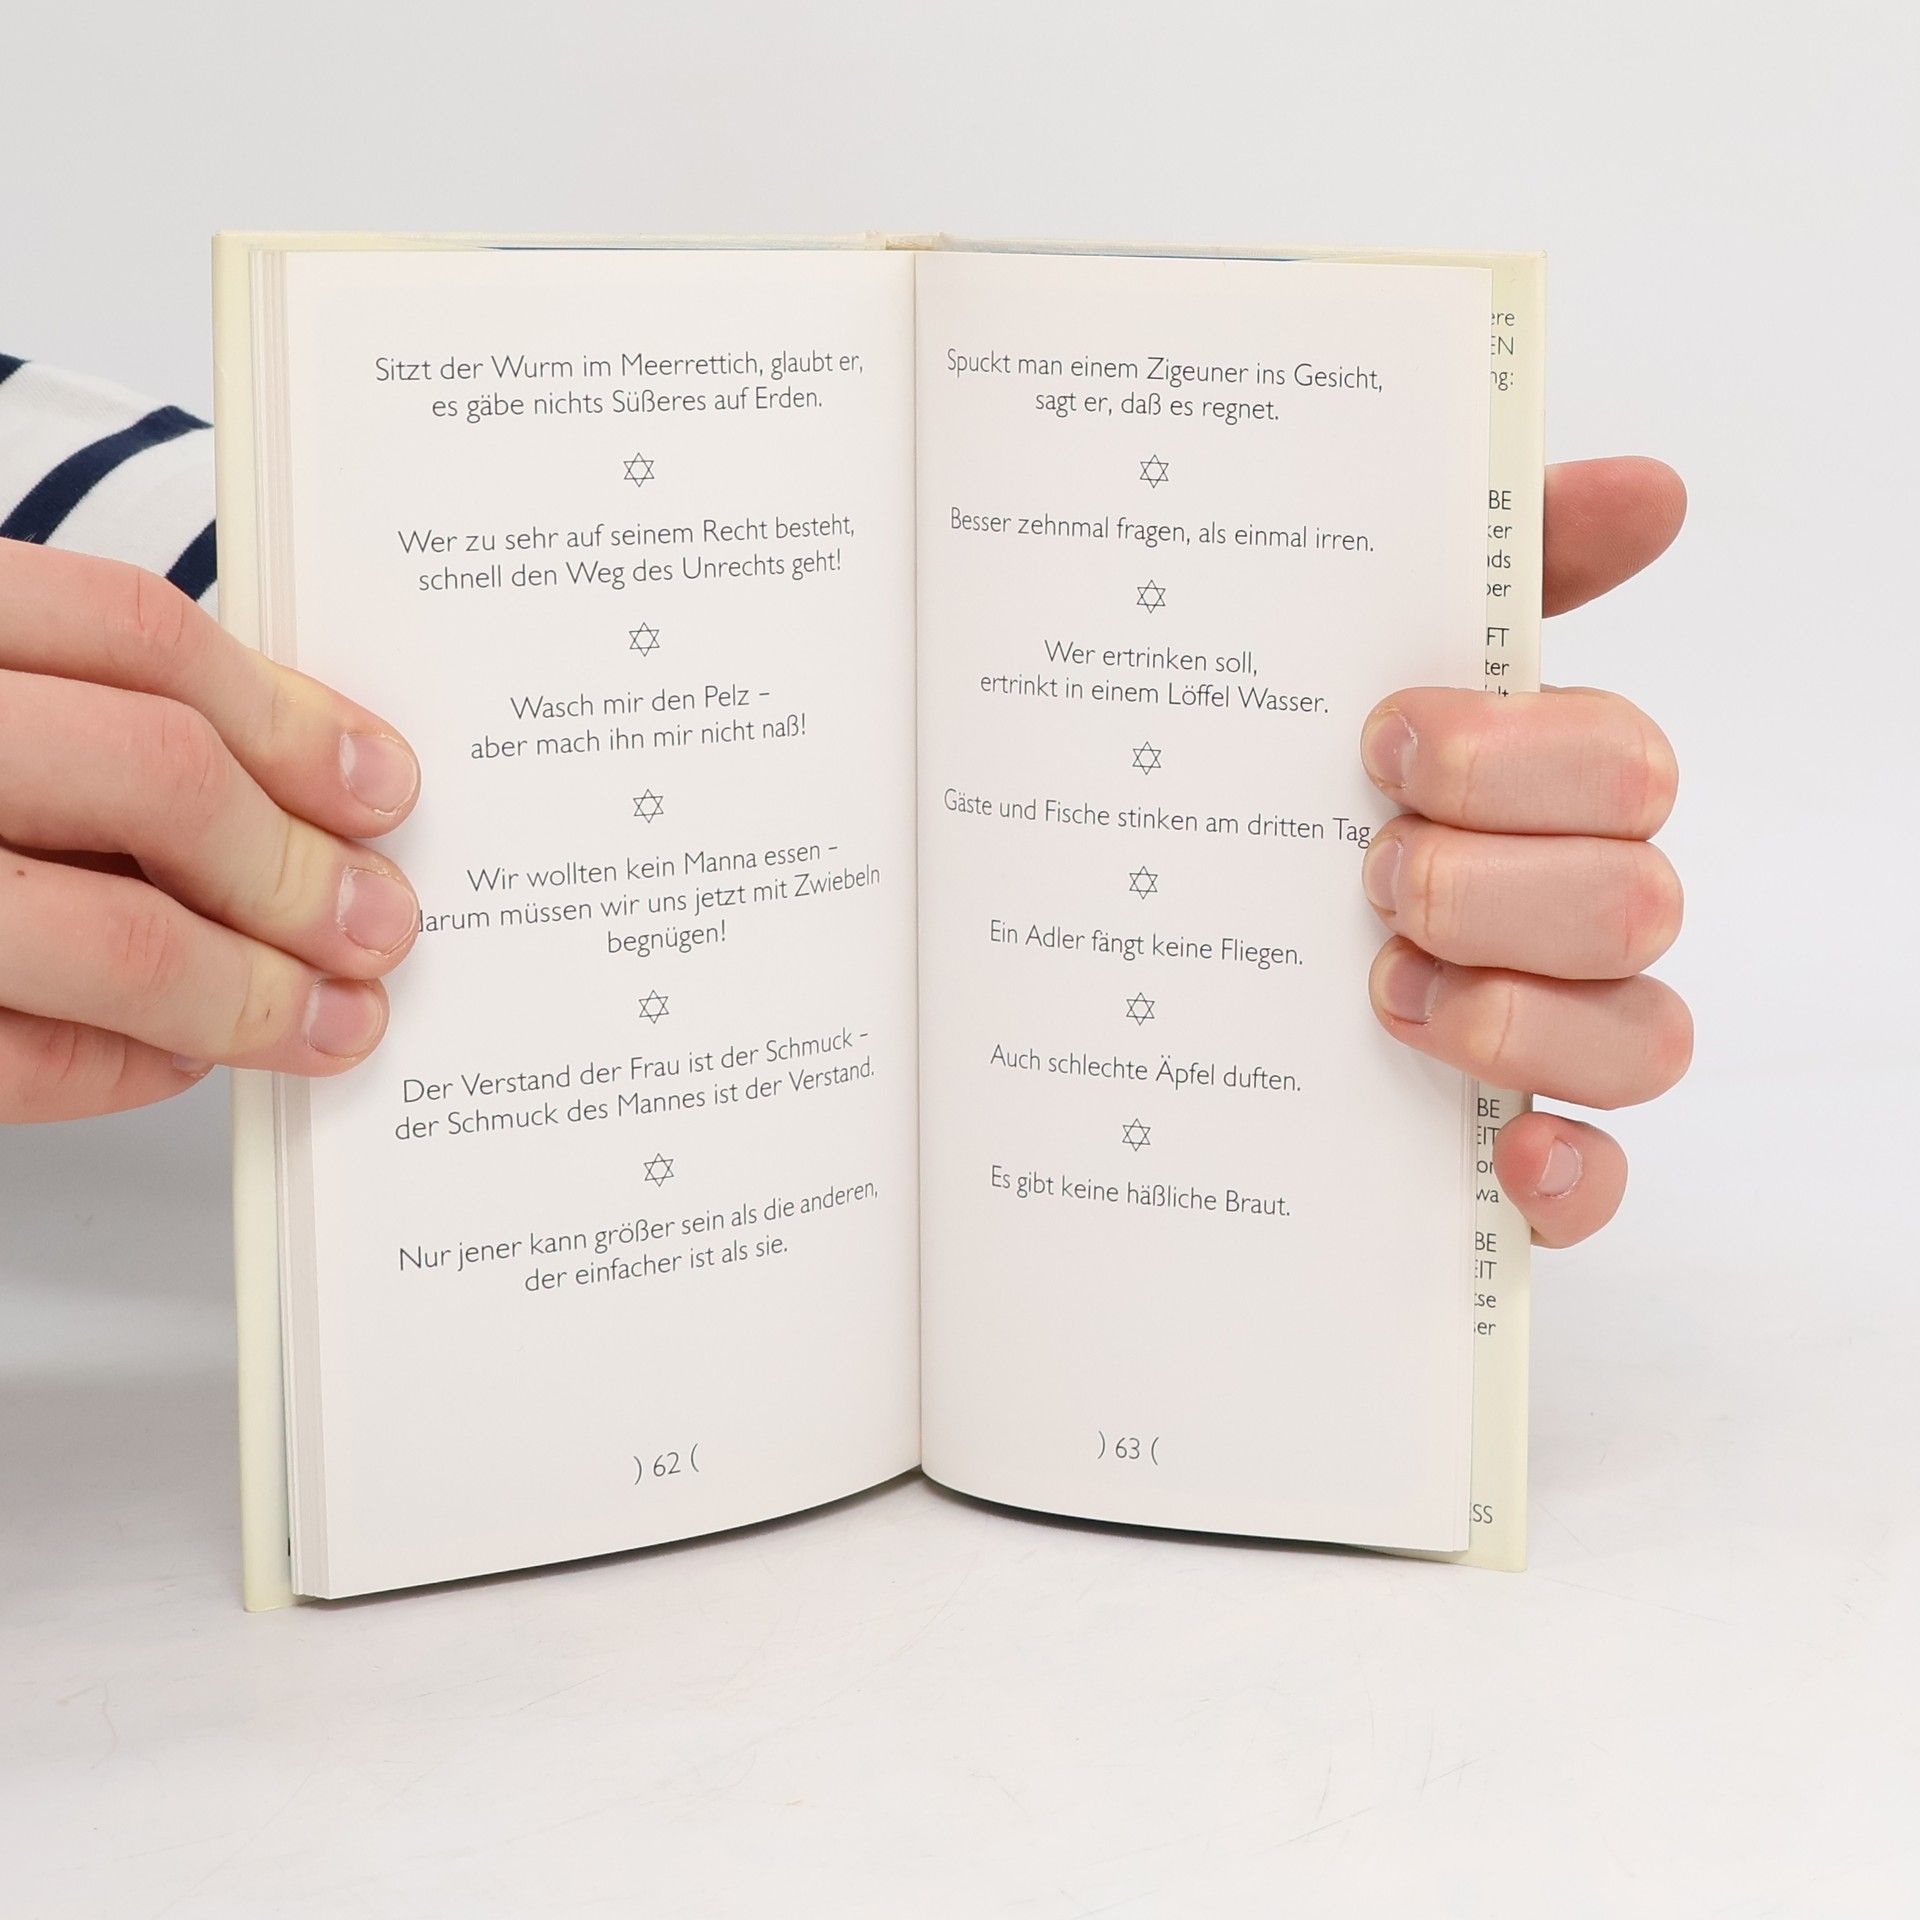 Sitzt der Wurm im Meerrettich, glaubt er,
es gäbe nichts Süßeres auf Erden.
Wer zu sehr auf seinem Recht besteht,
schnell den Weg des Unrechts geht!
Wasch mir den Pelz –
aber mach ihn mir nicht naß!
Wir wollten kein Manna essen –
darum müssen wir uns jetzt mit Zwiebeln
begnügen!
Der Verstand der Frau ist der Schmuck –
der Schmuck des Mannes ist der Verstand.
Nur jener kann größer sein als die anderen,
der einfacher ist als sie.
) 62 (
Spuckt man einem Zigeuner ins Gesicht,
sagt er, daß es regnet.
Besser zehnmal fragen, als einmal irren.
Wer ertrinken soll,
ertrinkt in einem Löffel Wasser.
Gäste und Fische stinken am dritten Tag.
Ein Adler fängt keine Fliegen.
Auch schlechte Äpfel duften.
Es gibt keine häßliche Braut.
) 63 (